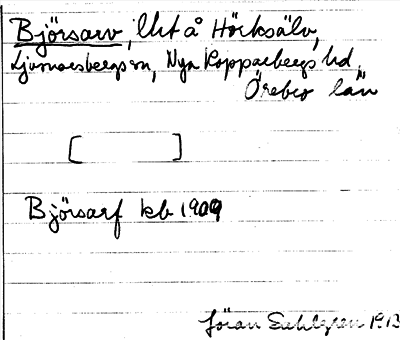 Björsarv, Utt å Hörksälv,
Ljusnarsbergs sn, Nya Kopparbergs hd,
Örebro län
[ ]
Björsarf kb 1909
Jöran Sahlgren 1913